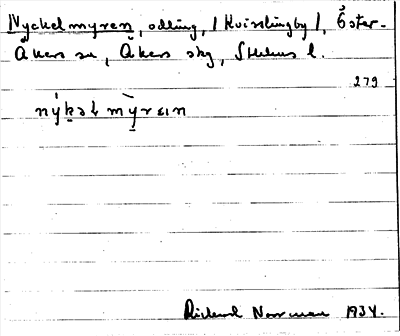 Nyckelmyren, odling, / Kvisslingby /, Öster-
Åkers sn, Åkers skg, Sthlms l.
279
nýkəł mỳrɛın
Rickard Norrman 1934.